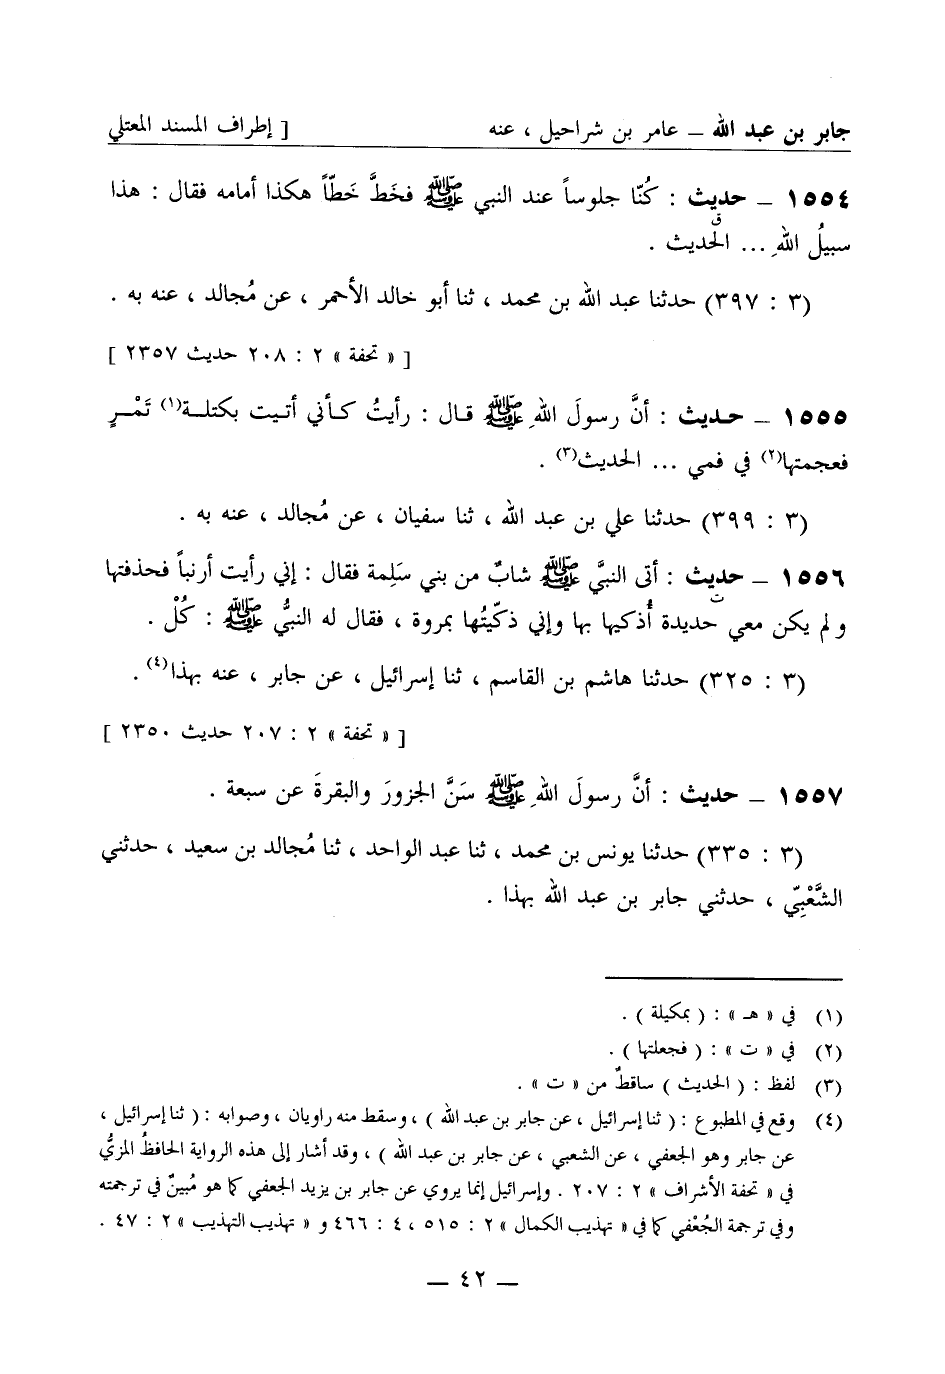 جابر بن عبد الله — عامر بن شراحيل ، عنه [ إطراف المسند المعتلي
١٥٥٤ — حديث : كُنّا جلوساً عند النبي ﷺ فخَطَّ خَطّاً هكذا أمامه فقال : هذا
ق
سبيلُ اللهِ ... الحديث .
(٣ : ٣٩٧) حدثنا عبد الله بن محمد ، ثنا أبو خالد الأحمر ، عن مُجالد ، عنه به .
[ « تحفة » ٢ : ٢٠٨ حديث ٢٣٥٧ ]
١٥٥٥ — حـديث : أنَّ رسولَ اللهِ ﷺ قـال : رأيتُ كـأني أتـيت بكتلـة(١) تَمْـرٍ
فعجمتها(٢) في فمي ... الحديث(٣) .
(٣ : ٣٩٩) حدثنا علي بن عبد الله ، ثنا سفيان ، عن مُجالد ، عنه به .
١٥٥٦ — حديث : أتى النبيَّ ﷺ شابٌ من بني سَلِمة فقال : إني رأيت أرنباً فحذفتها
ت
ولم يكن معي حديدة أُذكيها بها وإني ذكّيتُها بمروة ، فقال له النبيُّ ﷺ : كُلْ .
(٣ : ٣٢٥) حدثنا هاشم بن القاسم ، ثنا إسرائيل ، عن جابر ، عنه بهذا(٤) .
[ « تحفة » ٢ : ٢٠٧ حديث ٢٣٥٠ ]
١٥٥٧ — حديث : أنَّ رسولَ اللهِ ﷺ سَنَّ الجزورَ والبقرةَ عن سبعة .
(٣ : ٣٣٥) حدثنا يونس بن محمد ، ثنا عبد الواحد ، ثنا مُجالد بن سعيد ، حدثني
الشَّعْبِيّ ، حدثني جابر بن عبد الله بهذا .
(١) في « هـ » : ( بمكيلة ) .
(٢) في « ت » : ( فجعلتها ) .
(٣) لفظ : ( الحديث ) ساقطٌ من « ت » .
(٤) وقع في المطبوع : ( ثنا إسرائيل ، عن جابر بن عبد الله ) ، وسقط منه راويان ، وصوابه : ( ثنا إسرائيل ،
عن جابر وهو الجعفي ، عن الشعبي ، عن جابر بن عبد الله ) ، وقد أشار إلى هذه الرواية الحافظُ المزيُّ
في « تحفة الأشراف » ٢ : ٢٠٧ . وإسرائيل إنما يروي عن جابر بن يزيد الجعفي كما هو مُبينٌ في ترجمته
وفي ترجمة الجُعْفي كما في « تهذيب الكمال » ٢ : ٥١٥ ، ٤ : ٤٦٦ و « تهذيب التهذيب » ٢ : ٤٧ .
— ٤٢ —